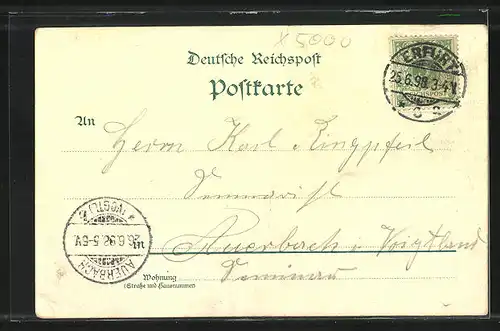 x 5000
Deutsche Reichspost
Postkarte
ERFURT
25.6.98. 3-4 N
REICHSPOST
An
Herrn Karl Ringpfeil
in Auerbach i. Voigtland
Seminar
AUERBACH
26.6.98. 5-6 V.
(VOGTL.)
Wohnung
(Straße und Hausnummer)